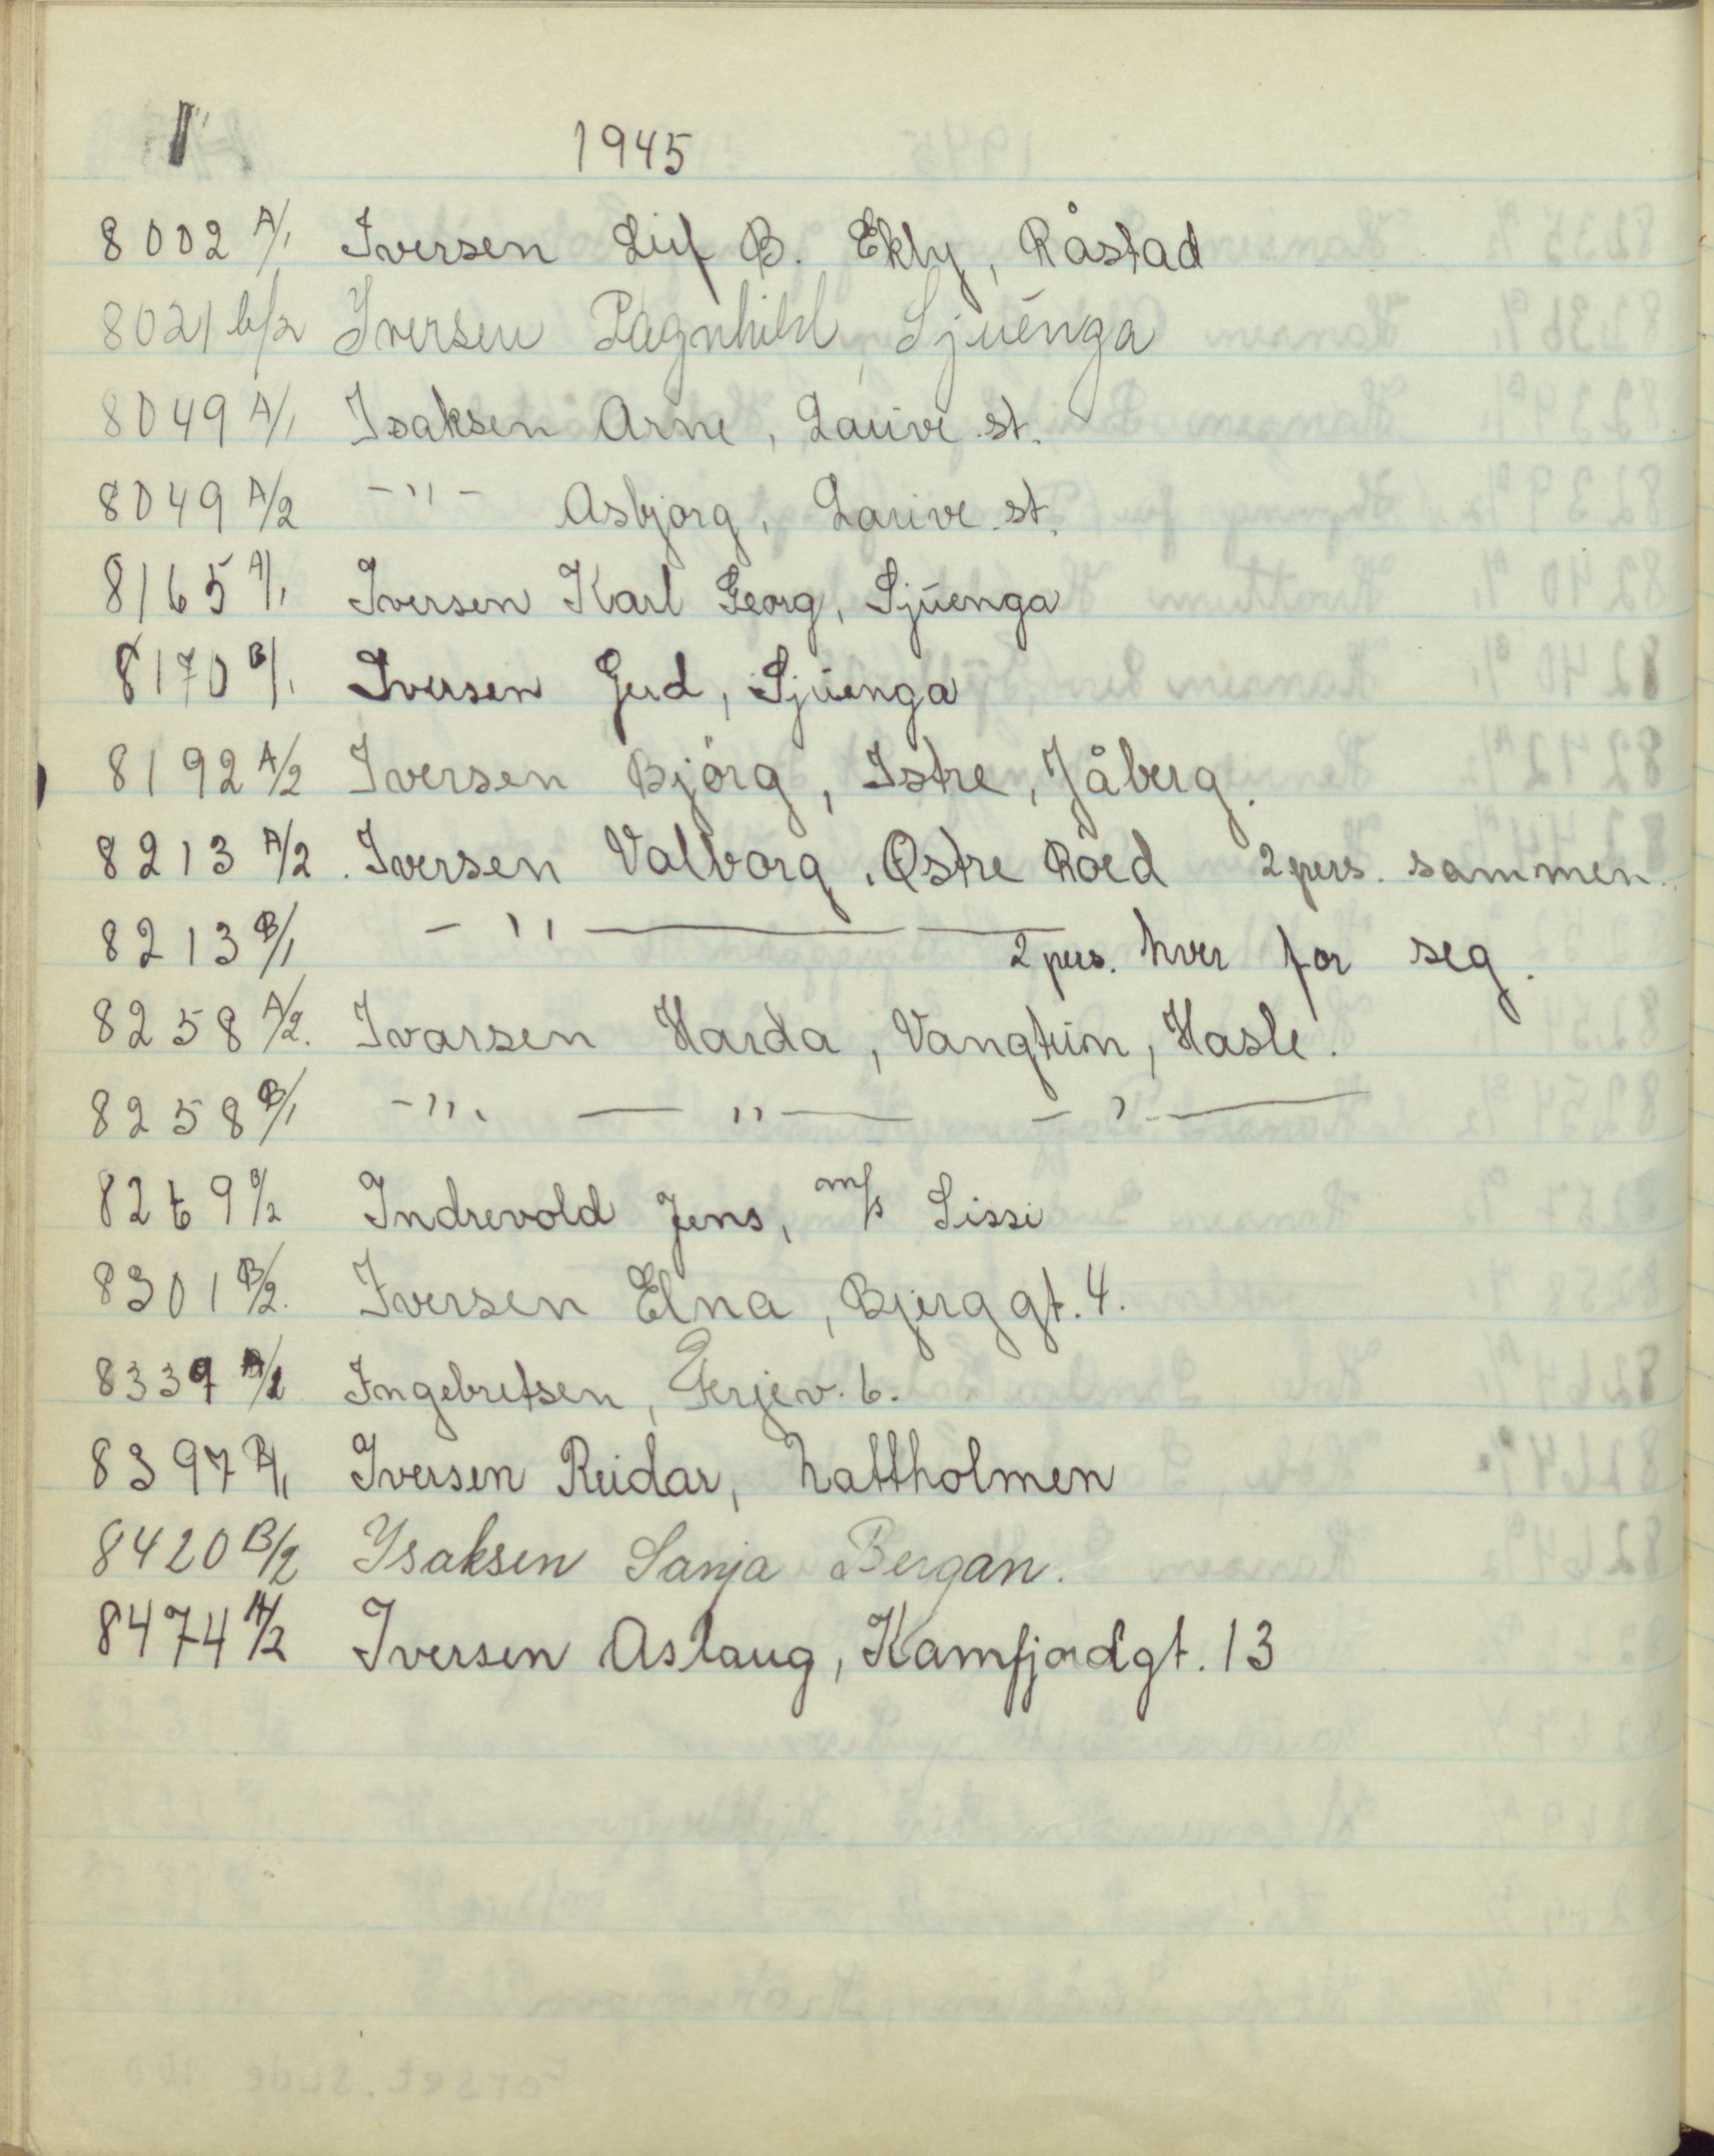 I
1945
8002 A/1 Iversen Leif B. Ekly, Råstad
8021 b/2 Iversen Ragnhild, Sjuenga
8049 A/1 Isaksen Arne, Lauve st.
8049 A/2 -"- Asbjørg, Lauve st.
8165 A/1 Iversen Karl Georg, Sjuenga
8170 B/1 Iversen Gerd, Sjuenga
8192 A/2 Iversen Bjørg, Istre, Jåberg.
8213 A/2 Iversen Valborg, Østre Röed 2 pers. sammen.
8213 B/1 -"- 2 pers. hver for seg.
8258 A/2. Ivarsen Harda, Vangtun, Hasle.
8258 B/1 -"- -"- -"-
8269 B/2 Indrevold Jens, m/s Sissi
8301 B/2. Iversen Elna, Bjerggt. 4.
8339 A/1 Ingebretsen, Ferjev. 6.
8397 B/1 Iversen Reidar, Nattholmen
8420 B/2 Isaksen Sanja Bergan.
8474 A/2 Iversen Aslaug, Kamfjordgt. 13